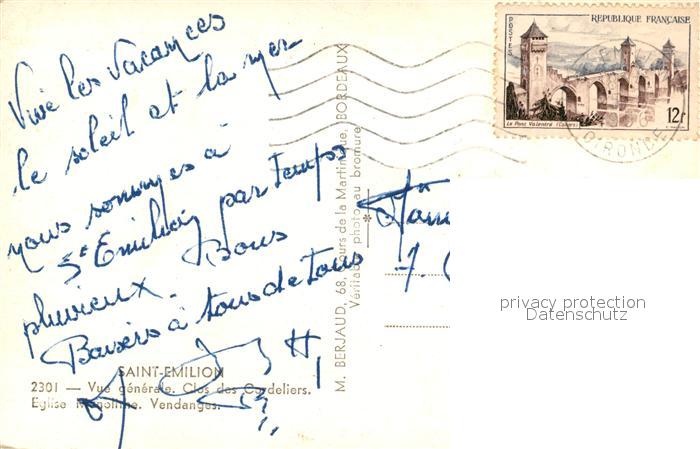 Vive les Vacances
le soleil et la mer
nous sommes à
St Emilion par temps
pluvieux. Bons
Baisers à tous de tous
SAINT-EMILION
2301 — Vue générale. Clos des Cordeliers.
Eglise Monolithe. Vendanges.
M. BERJAUD, 68, Cours de la Martinique, BORDEAUX
Véritable photo au bromure
POSTES
REPUBLIQUE FRANÇAISE
Le Pont Valentré (Cahors)
12f
GIRONDE
privacy protection
Datenschutz